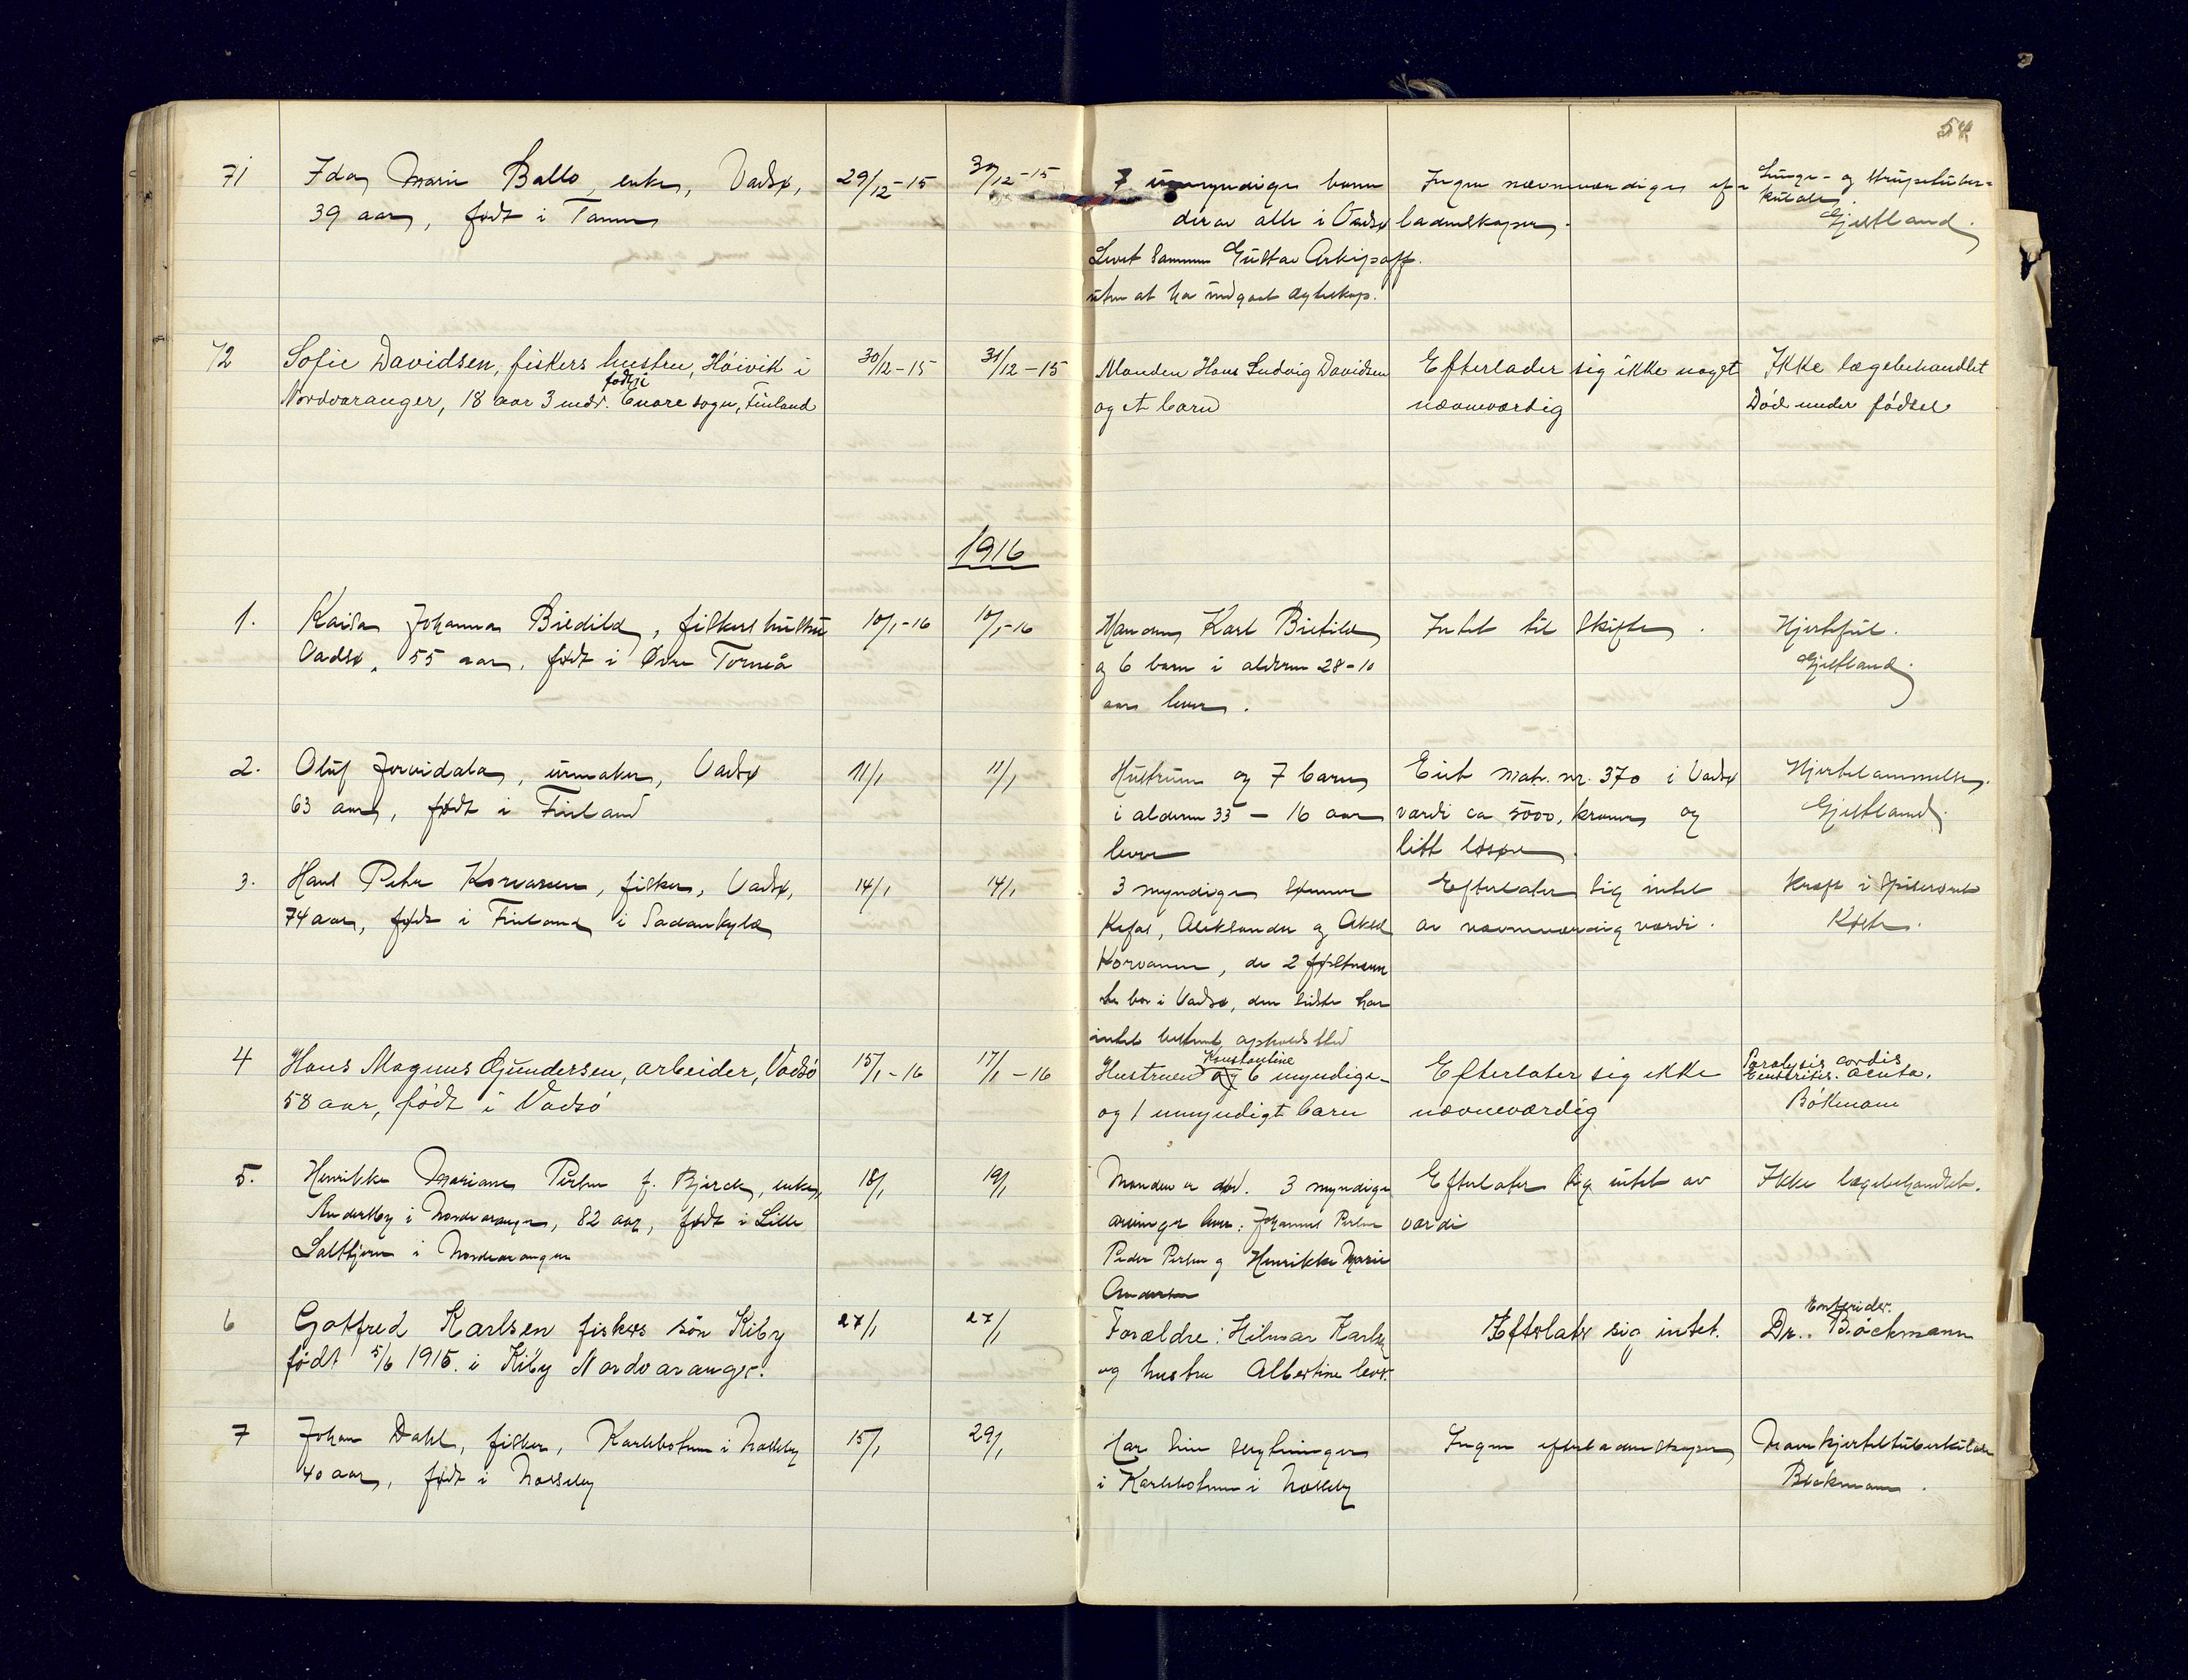 54
71 Ida Marie Ballo, enke, Vadsø, 29/12-15 30/12-15 7 umyndige barn Ingen nævneværdige ef= Lunge- og strupetuber=
39 aar, født i Tanen derav alle i Vadsø ladenskaper. kulose.
Gjestland
Levet sammen Gustav Arkipoff.
uten at ha indgaat egteskap.
72 Sofie Davidsen, fiskers hustru, Høivik i 30/12-15 31/12-15 Manden Hans Ludvig Davidsen Efterlader sig ikke noget Ikke lægebehandlet
født i
Nordvaranger, 18 aar 3 mdr. Enare sogn, Finland og et barn nævneværdig Død under fødsel
1916
1. Kaisa Johanna Biedild, fiskers hustru 10/1-16 10/1-16 Manden Karl Bietild Intet til skifte. Hjertefeil.
Vadsø, 55 aar, født i Øvre Torneå og 6 barn i alderen 28-10 Gjestland.
aar lever.
2. Oluf Jorvidala, urmaker, Vadsø 11/1 11/1 Hustruen og 7 barn Eiet matr. nr. 370 i Vadsø Hjertelammelse.
63 aar, født i Finland i alderen 33 - 16 aar værdi ca 5000, kroner og Gjestland.
lever litt løsøre.
3. Hans Peter Korvanen, fisker, Vadsø, 14/1 14/1 3 myndige sønner Efterlater sig intet Kræft i spiserøret
74 aar, født i Finland i Sodankylæ Kefas, Aleksander og Aksel av nævneværdig værdi.
Korvanen, de 2 førstnævn
te bor i Vadsø, den sidste har
intet bestemt opholdssted
4 Hans Magnus Gundersen, arbeider, Vadsø 15/1-16 17/1-16 Hustruen Konstantine og 6 myndige- Efterlater sig ikke Paralysis cordis
Enteritis acuta.
58 aar, født i Vadsø og 1 umyndigt barn nævneværdig Bökmann
5. Henrikke Mariane Persen f. Bjerck, enke, 18/1 19/1 Manden er død. 3 myndige Efterlater sig intet av Ikke lægebehandlet.
Andersby i Nordvaranger, 82 aar, født i Lille arvinger lever: Johannes Persen værdi
Saltfjern i Nordvaranger Peder Persen og Henrikke Marie
Andersen
6 Gotfred Karlsen fiskers søn Kiby 27/1 27/1 Forældre: Hilmar Karlsen Efterlater sig intet. Enterider.
Dr. Böckmann
født 5/6 1915. i Kiby Nordvaranger. og hustru Albertine lever.
7 Johan Dahl, fisker, Karlebotn i Nesseby 15/1 29/1 Har sine slegtninger Ingen efterladenskaper Navnkjerteltuberkulose
40 aar, født i Nesseby i Karlebotn i Nesseby Bøckmann.